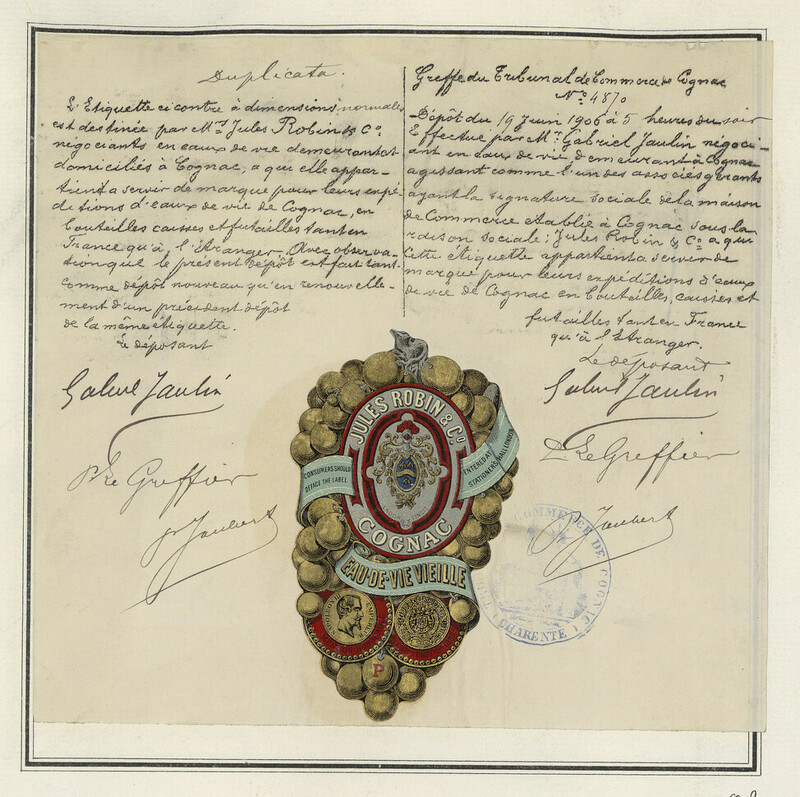 Duplicata.
L'Etiquette ci contre à dimensions normales
est destinée par Mrs Jules Robin & Co.
négociants en eaux de vie demeurant et
domiciliés à Cognac, a qui elle appar-
tient a servir de marque pour leurs expé-
ditions d'eaux de vie de Cognac, en
bouteilles caisses et futailles tant en
France qu'à l'étranger. Avec observa-
tion que le présent dépôt est fait tant
comme dépôt nouveau qu'en renouvelle-
ment d'un précédent dépôt
de la même étiquette.
Le déposant
Gabriel Jaulin
Pr Le Greffier
Jaubert
Greffe du Tribunal de Commerce de Cognac
No. 4870
Dépôt du 19 Juin 1906 à 5 heures du soir
Effectué par Mr. Gabriel Jaulin négoci-
ant en eaux de vie, demeurant à Cognac
agissant comme l'un des associés gérants
ayant la signature sociale de la maison
de Commerce établie à Cognac sous la
raison sociale: Jules Robin & Co. a qui
cette étiquette appartient a servir de
marque pour leurs expéditions d'eaux
de vie de Cognac en bouteilles, caisses et
futailles tant en France
qu'à l'Etranger.
Le déposant
Gabriel Jaulin
Pr Le Greffier
Jaubert
JULES ROBIN & Co.
CONSUMERS SHOULD
DEFACE THE LABEL
ENTERED AT
STATIONERS HALL LONDON
COGNAC
EAU-DE-VIE VIEILLE
P
COMMERCE DE COGNAC
CHARENTE